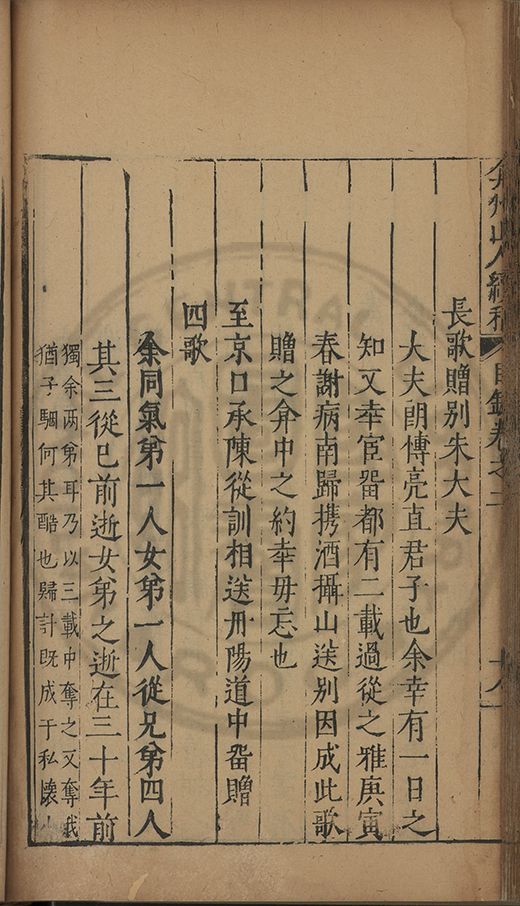 弇州山人續稿 目錄卷之二 十八
長歌贈別朱大夫
大夫朗傳亮直君子也余幸有一日之
知又幸宦畱都有二載過從之雅庚寅
春謝病南歸携酒攝山送別因成此歌
贈之弇中之約幸毋忘也
至京口承陳從訓相送丹陽道中畱贈
四歌
余同氣第一人女弟一人從兄弟四人
其三從巳前逝女弟之逝在三十年前
獨余两弟耳乃以三載中奪之又奪我
猶子駰何其酷也歸計既成于私懷